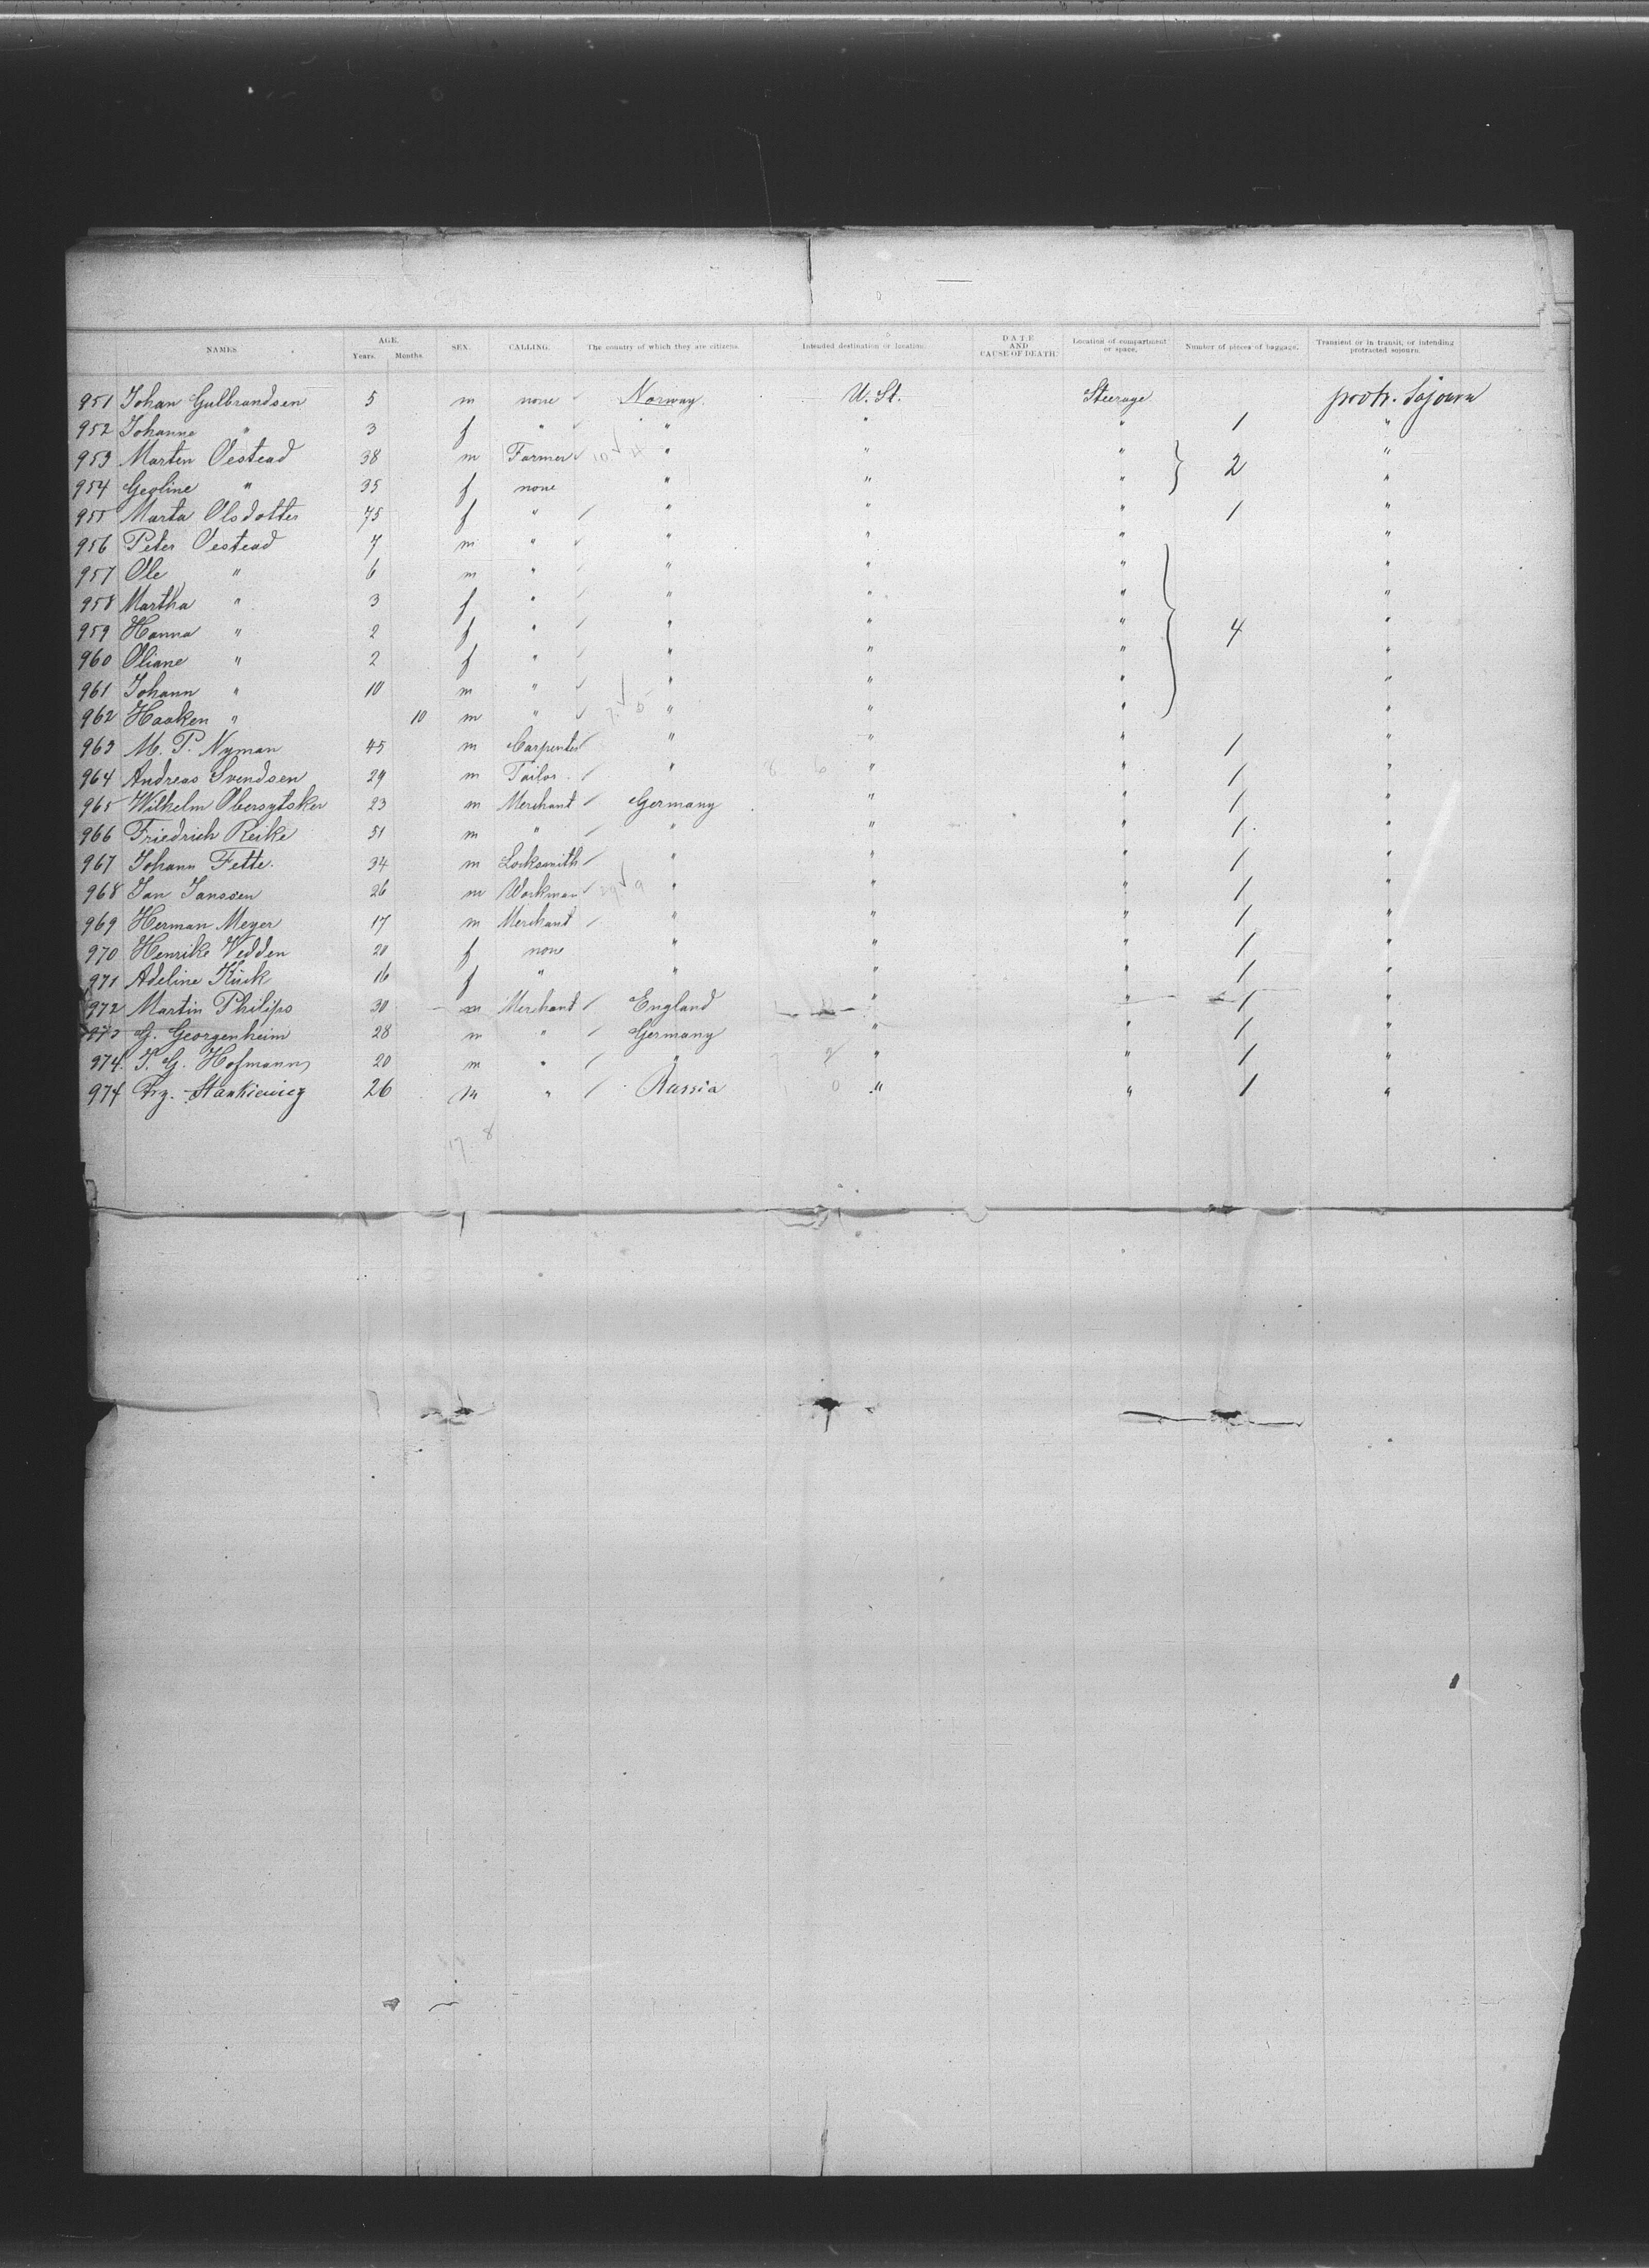 NAMES AGE. Years. Months. SEX. CALLING. The country of which they are citizens. Intended destination or location. DATE AND CAUSE OF DEATH. Location of compartment or space. Number of pieces of baggage. Transient or in transit, or intending protracted sojourn.
951 Johan Gulbrandsen 5 m none Norway U. St. Steerage protr. Sojourn
952 Johanne " 3 f " " " " 1 "
953 Marten Oestead 38 m Farmer " " " 2 "
954 Geoline " 35 f none " " " "
955 Marta Olsdotter 75 f " " " " 1 "
956 Peter Oestead 7 m " " " " "
957 Ole " 6 m " " " " "
958 Martha " 3 f " " " " "
959 Hanna " 2 f " " " " 4 "
960 Oliane " 2 f " " " " "
961 Johann " 10 m " " " " "
962 Haaken " 10 m " " " " "
963 M. P. Nyman 45 m Carpenter " " " 1 "
964 Andreas Svendsen 29 m Tailor " " " 1 "
965 Wilhelm 23 m Merchant Germany " " 1 "
966 Friedrich Reike 51 m " " " " 1 "
967 Johann Fette 34 m Locksmith " " " 1 "
968 Jan Janssen 26 m Workman " " " 1 "
969 Herman Meyer 17 m Merchant " " " 1 "
970 Henrike Vedden 20 f none " " " 1 "
971 Adeline Kück 16 f " " " " 1 "
972 Martin Philips 30 m Merchant England " " 1 "
973 G. Georgenheim 28 m " Germany " " 1 "
974. G. Hofmann 20 m " " " " 1 "
974 Frz. Stankiewicz 26 m " Russia " " 1 "
17 8